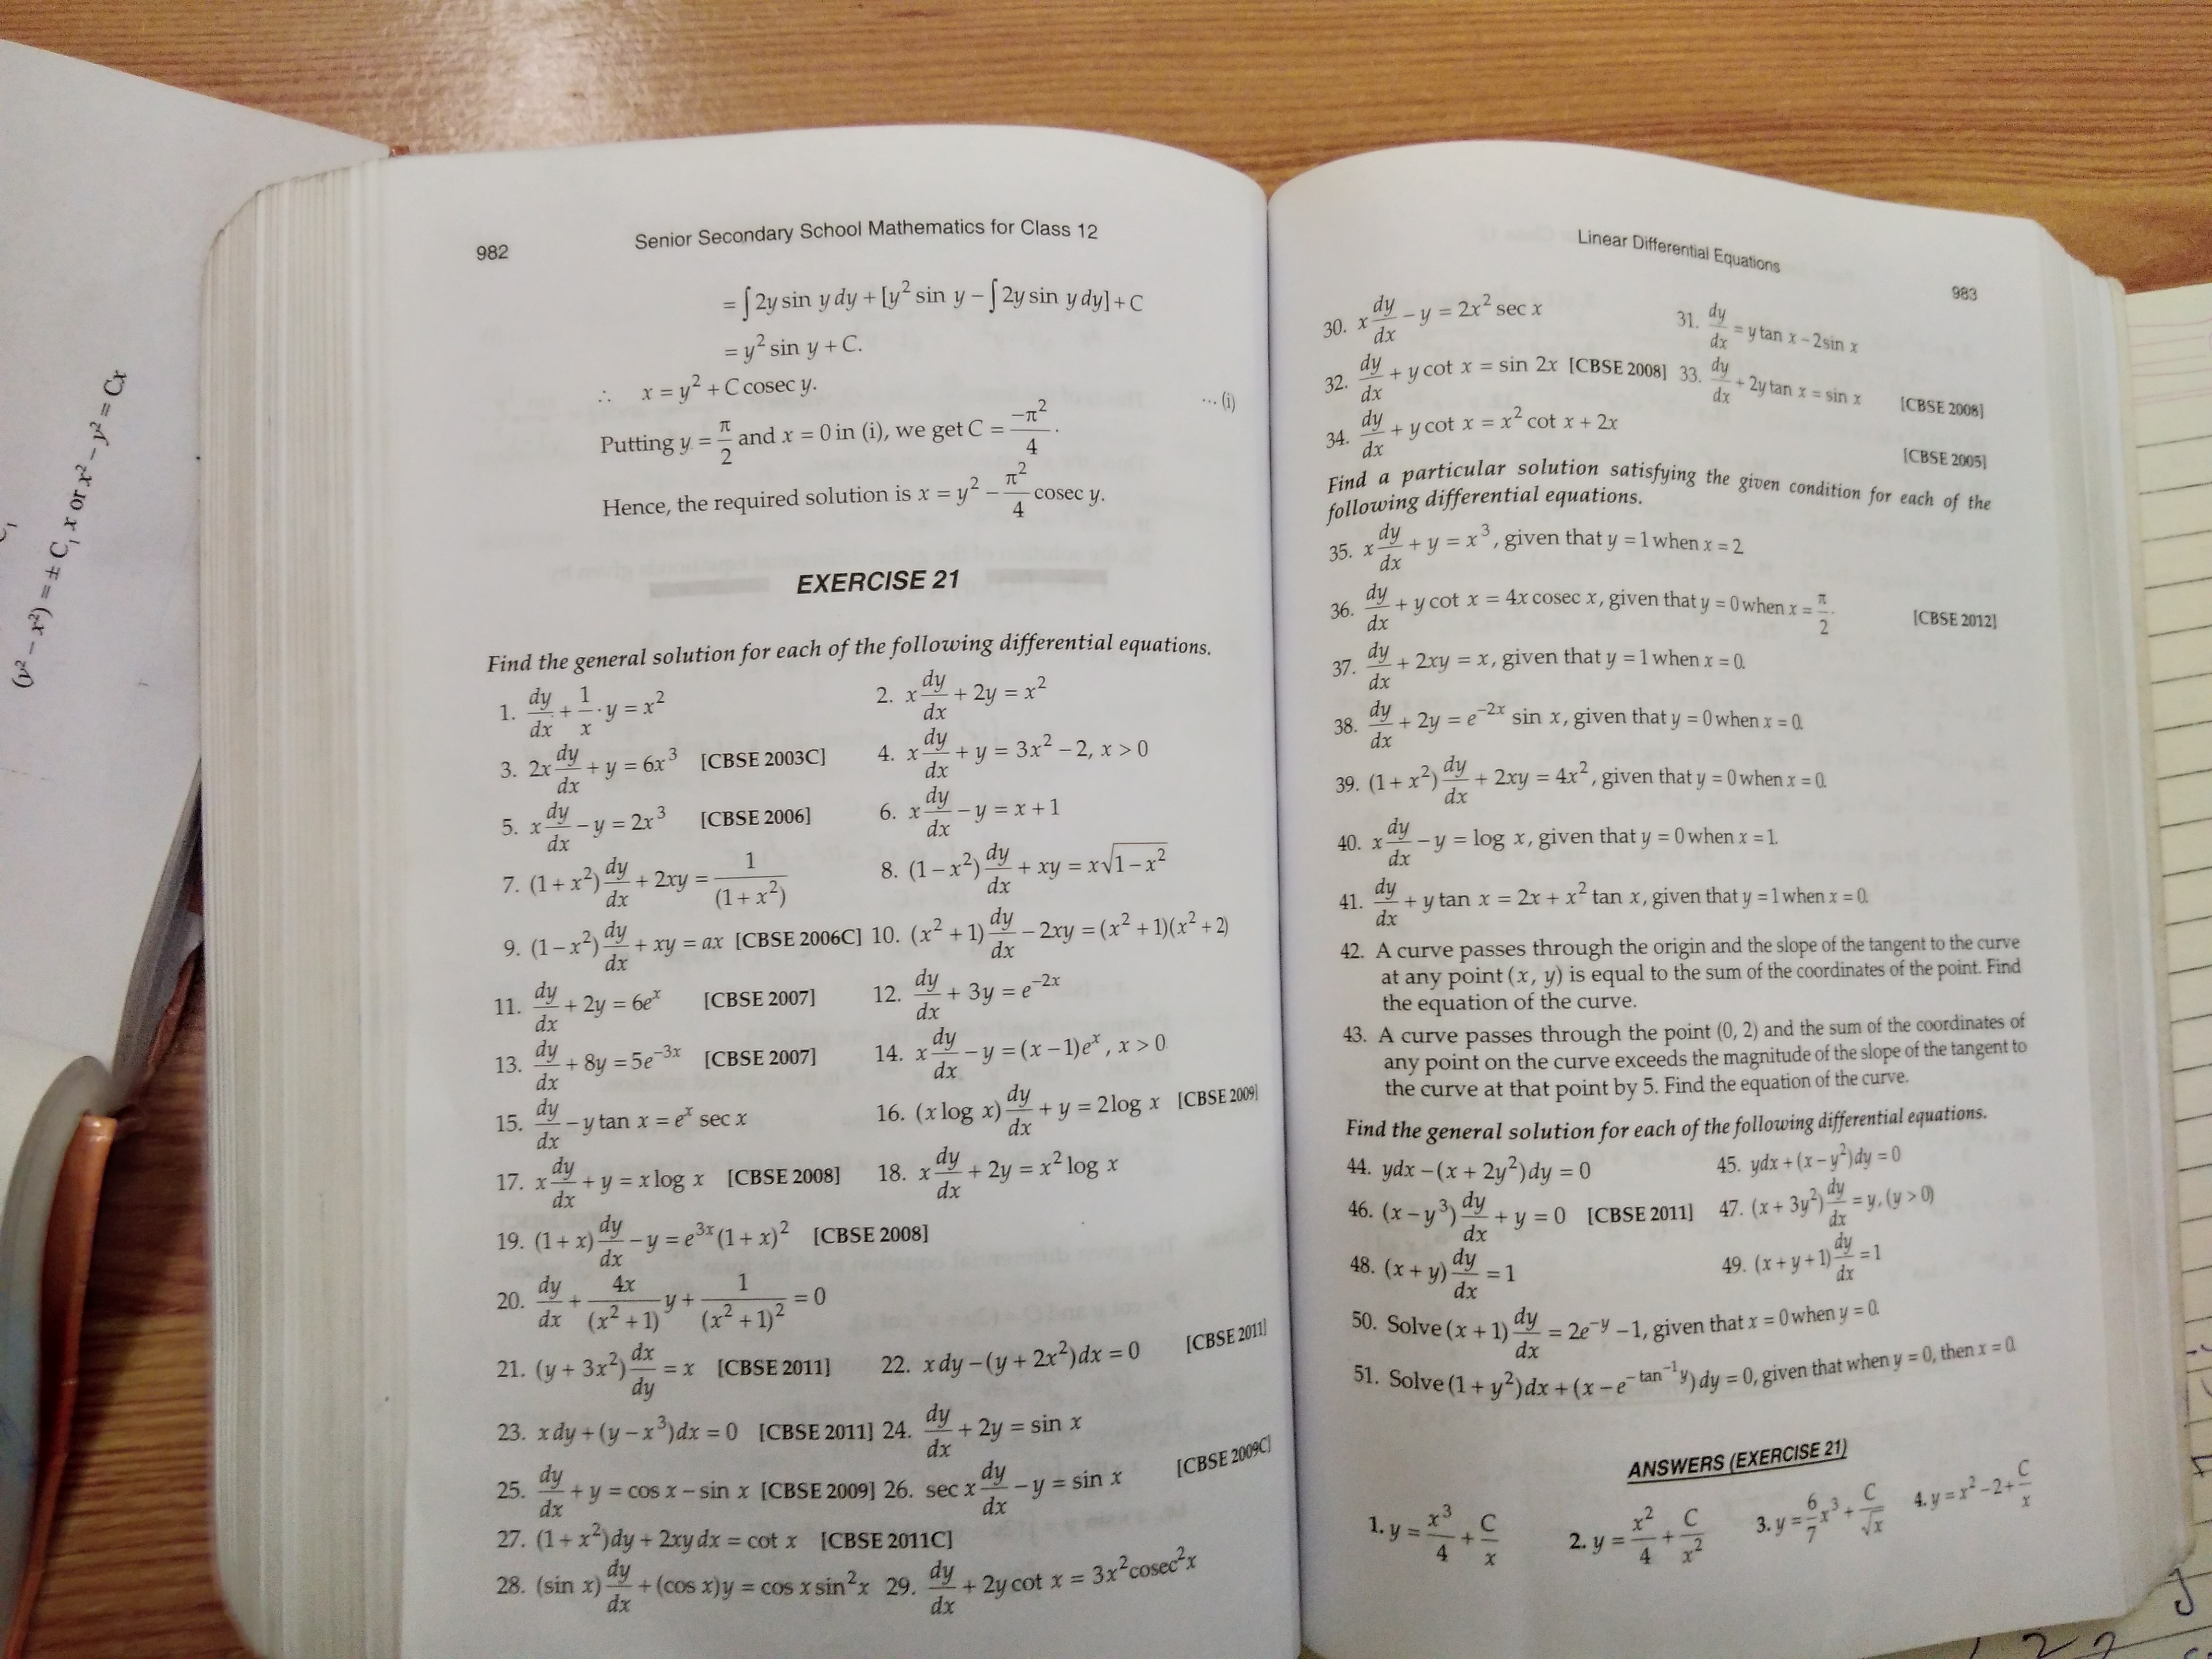 (y² – x²) = ± C₁ x or x² – y² = Cx
982
Senior Secondary School Mathematics for Class 12
= ∫ 2y sin y dy + [y² sin y – ∫ 2y sin y dy] + C
= y² sin y + C.
∴ x = y² + C cosec y. ... (i)
Putting y = π/2 and x = 0 in (i), we get C = –π²/4.
Hence, the required solution is x = y² – π²/4 cosec y.
EXERCISE 21
Find the general solution for each of the following differential equations.
1. dy/dx + 1/x · y = x² 2. x dy/dx + 2y = x²
3. 2x dy/dx + y = 6x³ [CBSE 2003C] 4. x dy/dx + y = 3x² – 2, x > 0
5. x dy/dx – y = 2x³ [CBSE 2006] 6. x dy/dx – y = x + 1
7. (1 + x²) dy/dx + 2xy = 1/(1 + x²) 8. (1 – x²) dy/dx + xy = x√(1 – x²)
9. (1 – x²) dy/dx + xy = ax [CBSE 2006C] 10. (x² + 1) dy/dx – 2xy = (x² + 1)(x² + 2)
11. dy/dx + 2y = 6eˣ [CBSE 2007] 12. dy/dx + 3y = e^(–2x)
13. dy/dx + 8y = 5e^(–3x) [CBSE 2007] 14. x dy/dx – y = (x – 1)eˣ, x > 0
15. dy/dx – y tan x = eˣ sec x 16. (x log x) dy/dx + y = 2 log x [CBSE 2009]
17. x dy/dx + y = x log x [CBSE 2008] 18. x dy/dx + 2y = x² log x
19. (1 + x) dy/dx – y = e^(3x) (1 + x)² [CBSE 2008]
20. dy/dx + 4x/(x² + 1) y + 1/(x² + 1)² = 0
21. (y + 3x²) dx/dy = x [CBSE 2011] 22. x dy – (y + 2x²)dx = 0 [CBSE 2011]
23. x dy + (y – x³)dx = 0 [CBSE 2011] 24. dy/dx + 2y = sin x
25. dy/dx + y = cos x – sin x [CBSE 2009] 26. sec x dy/dx – y = sin x [CBSE 2009C]
27. (1 + x²)dy + 2xy dx = cot x [CBSE 2011C]
28. (sin x) dy/dx + (cos x)y = cos x sin²x 29. dy/dx + 2y cot x = 3x² cosec²x
Linear Differential Equations
983
30. x dy/dx – y = 2x² sec x 31. dy/dx = y tan x – 2 sin x
32. dy/dx + y cot x = sin 2x [CBSE 2008] 33. dy/dx + 2y tan x = sin x [CBSE 2008]
34. dy/dx + y cot x = x² cot x + 2x [CBSE 2005]
Find a particular solution satisfying the given condition for each of the
following differential equations.
35. x dy/dx + y = x³, given that y = 1 when x = 2
36. dy/dx + y cot x = 4x cosec x, given that y = 0 when x = π/2. [CBSE 2012]
37. dy/dx + 2xy = x, given that y = 1 when x = 0.
38. dy/dx + 2y = e^(–2x) sin x, given that y = 0 when x = 0.
39. (1 + x²) dy/dx + 2xy = 4x², given that y = 0 when x = 0.
40. x dy/dx – y = log x, given that y = 0 when x = 1.
41. dy/dx + y tan x = 2x + x² tan x, given that y = 1 when x = 0.
42. A curve passes through the origin and the slope of the tangent to the curve
at any point (x, y) is equal to the sum of the coordinates of the point. Find
the equation of the curve.
43. A curve passes through the point (0, 2) and the sum of the coordinates of
any point on the curve exceeds the magnitude of the slope of the tangent to
the curve at that point by 5. Find the equation of the curve.
Find the general solution for each of the following differential equations.
44. ydx – (x + 2y²)dy = 0 45. ydx + (x – y²)dy = 0
46. (x – y³) dy/dx + y = 0 [CBSE 2011] 47. (x + 3y²) dy/dx = y, (y > 0)
48. (x + y) dy/dx = 1 49. (x + y + 1) dy/dx = 1
50. Solve (x + 1) dy/dx = 2e^(–y) – 1, given that x = 0 when y = 0.
51. Solve (1 + y²)dx + (x – e^(– tan⁻¹ y))dy = 0, given that when y = 0, then x = 0.
ANSWERS (EXERCISE 21)
1. y = x³/4 + C/x 2. y = x²/4 + C/x² 3. y = 6/7 x³ + C/√x 4. y = x² – 2 + C/x